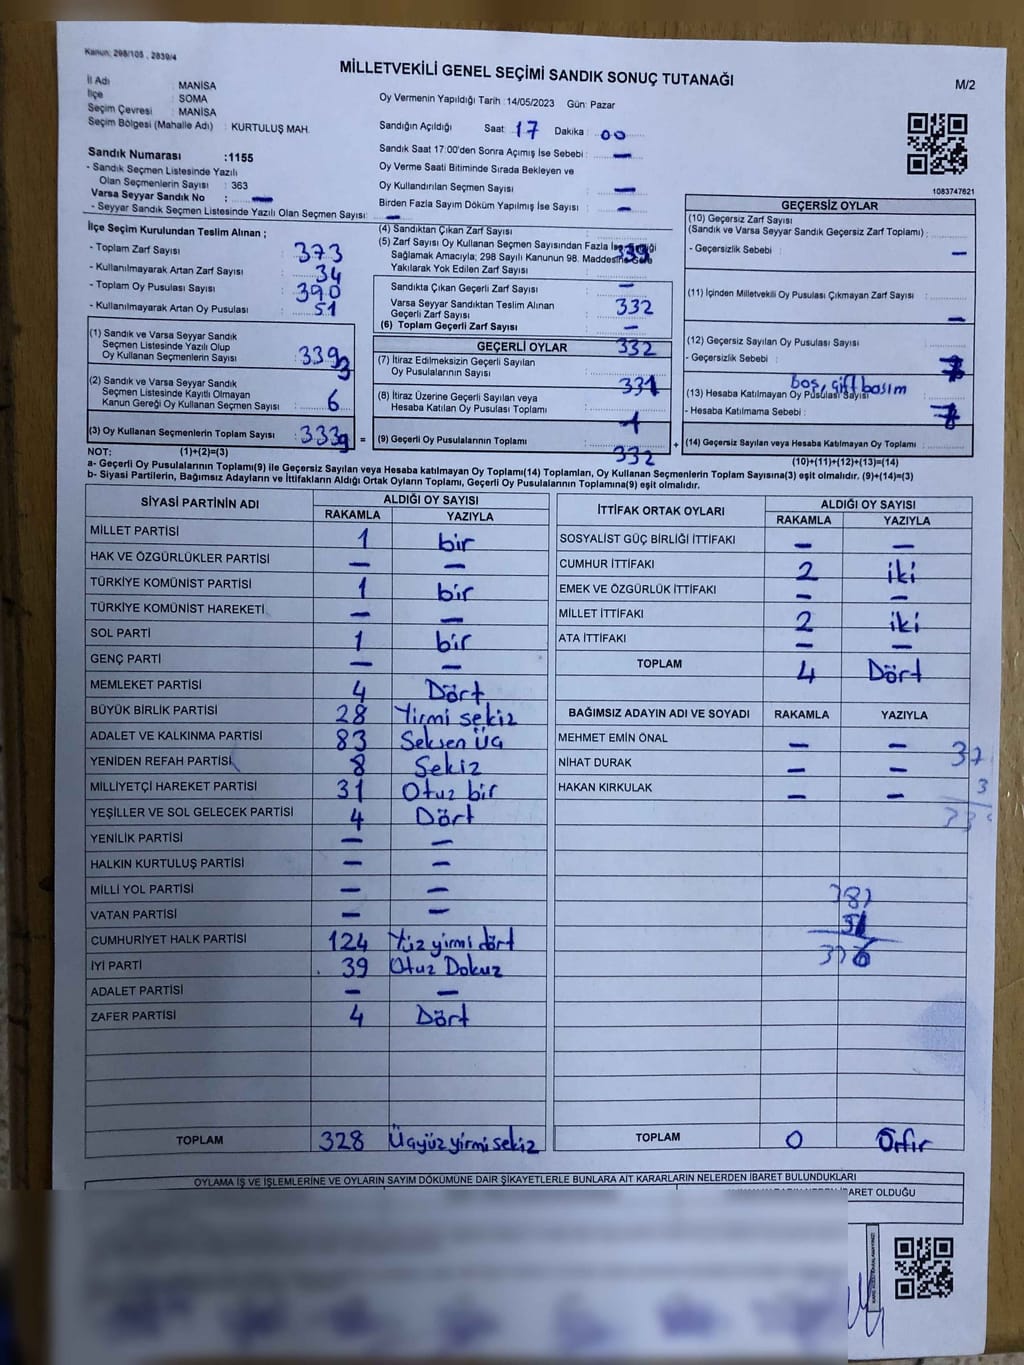 Kanun: 298/105 . 2839/4
MİLLETVEKİLİ GENEL SEÇİMİ SANDIK SONUÇ TUTANAĞI
M/2
İl Adı : MANİSA
İlçe : SOMA
Seçim Çevresi : MANİSA
Seçim Bölgesi (Mahalle Adı) : KURTULUŞ MAH.
Sandık Numarası :1155
- Sandık Seçmen Listesinde Yazılı
Olan Seçmenlerin Sayısı : 363
Varsa Seyyar Sandık No : —
- Seyyar Sandık Seçmen Listesinde Yazılı Olan Seçmen Sayısı: —
Oy Vermenin Yapıldığı Tarih :14/05/2023 Gün: Pazar
Sandığın Açıldığı Saat: 17 Dakika : 00
Sandık Saat 17:00'den Sonra Açımış İse Sebebi : —
Oy Verme Saati Bitiminde Sırada Bekleyen ve
Oy Kullandırılan Seçmen Sayısı —
Birden Fazla Sayım Döküm Yapılmış İse Sayısı : —
1083747621
İlçe Seçim Kurulundan Teslim Alınan ;
- Toplam Zarf Sayısı : 373
- Kullanılmayarak Artan Zarf Sayısı : 34
- Toplam Oy Pusulası Sayısı : 390
- Kullanılmayarak Artan Oy Pusulası : 51
(1) Sandık ve Varsa Seyyar Sandık
Seçmen Listesinde Yazılı Olup
Oy Kullanan Seçmenlerin Sayısı
(2) Sandık ve Varsa Seyyar Sandık
Seçmen Listesinde Kayıtlı Olmayan
Kanun Gereği Oy Kullanan Seçmen Sayısı : 6
(3) Oy Kullanan Seçmenlerin Toplam Sayısı
(4) Sandıktan Çıkan Zarf Sayısı
(5) Zarf Sayısı Oy Kullanan Seçmen Sayısından Fazla İse
Sağlamak Amacıyla; 298 Sayılı Kanunun 98. Maddesine Göre
Yakılarak Yok Edilen Zarf Sayısı
339
Sandıkta Çıkan Geçerli Zarf Sayısı —
Varsa Seyyar Sandıktan Teslim Alınan
Geçerli Zarf Sayısı 332
(6) Toplam Geçerli Zarf Sayısı —
GEÇERLİ OYLAR 332
(7) İtiraz Edilmeksizin Geçerli Sayılan
Oy Pusulalarının Sayısı 331
(8) İtiraz Üzerine Geçerli Sayılan veya
Hesaba Katılan Oy Pusulası Toplamı 1
= (9) Geçerli Oy Pusulalarının Toplamı 332
GEÇERSİZ OYLAR
(10) Geçersiz Zarf Sayısı
(Sandık ve Varsa Seyyar Sandık Geçersiz Zarf Toplamı) :
- Geçersizlik Sebebi : —
(11) İçinden Milletvekili Oy Pusulası Çıkmayan Zarf Sayısı —
(12) Geçersiz Sayılan Oy Pusulası Sayısı
- Geçersizlik Sebebi : 7
boş, çift basım
(13) Hesaba Katılmayan Oy Pusulası Sayısı
- Hesaba Katılmama Sebebi :
+ (14) Geçersiz Sayılan veya Hesaba Katılmayan Oy Toplamı 7
NOT: (1)+(2)=(3)
(10)+(11)+(12)+(13)=(14)
a- Geçerli Oy Pusulasının Toplamı(9) ile Geçersiz Sayılan veya Hesaba katılmayan Oy Toplamı(14) Toplamları, Oy Kullanan Seçmenlerin Toplam Sayısına(3) eşit olmalıdır. (9)+(14)=(3)
b- Siyasi Partilerin, Bağımsız Adayların ve İttifakların Aldığı Ortak Oyların Toplamı, Geçerli Oy Pusulalarının Toplamına(9) eşit olmalıdır.
SİYASİ PARTİNİN ADI ALDIĞI OY SAYISI
RAKAMLA YAZIYLA
MİLLET PARTİSİ 1 bir
HAK VE ÖZGÜRLÜKLER PARTİSİ — —
TÜRKİYE KOMÜNİST PARTİSİ 1 bir
TÜRKİYE KOMÜNİST HAREKETİ — —
SOL PARTİ 1 bir
GENÇ PARTİ — —
MEMLEKET PARTİSİ 4 Dört
BÜYÜK BİRLİK PARTİSİ 28 Yirmi sekiz
ADALET VE KALKINMA PARTİSİ 83 Seksen üç
YENİDEN REFAH PARTİSİ 8 Sekiz
MİLLİYETÇİ HAREKET PARTİSİ 31 Otuz bir
YEŞİLLER VE SOL GELECEK PARTİSİ 4 Dört
YENİLİK PARTİSİ — —
HALKIN KURTULUŞ PARTİSİ — —
MİLLİ YOL PARTİSİ — —
VATAN PARTİSİ — —
CUMHURİYET HALK PARTİSİ 124 Yüz yirmi dört
İYİ PARTİ 39 Otuz Dokuz
ADALET PARTİSİ — —
ZAFER PARTİSİ 4 Dört
TOPLAM 328 Üçyüz yirmi sekiz
İTTİFAK ORTAK OYLARI ALDIĞI OY SAYISI
RAKAMLA YAZIYLA
SOSYALİST GÜÇ BİRLİĞİ İTTİFAKI — —
CUMHUR İTTİFAKI 2 iki
EMEK VE ÖZGÜRLÜK İTTİFAKI — —
MİLLET İTTİFAKI 2 iki
ATA İTTİFAKI — —
TOPLAM 4 Dört
BAĞIMSIZ ADAYIN ADI VE SOYADI RAKAMLA YAZIYLA
MEHMET EMİN ÖNAL — —
NİHAT DURAK — —
HAKAN KIRKULAK — —
TOPLAM 0 Sıfır
OYLAMA İŞ VE İŞLEMLERİNE VE OYLARIN SAYIM DÖKÜMÜNE DAİR ŞİKAYETLERLE BUNLARA AİT KARARLARIN NELERDEN İBARET BULUNDUKLARI
İBARET OLDUĞU